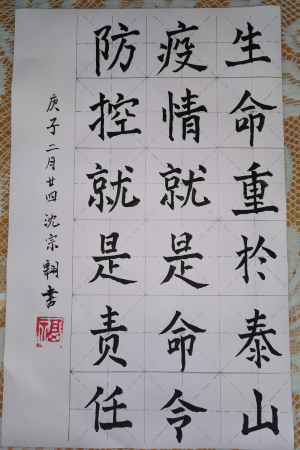 生命重於泰山
疫情就是命令
防控就是责任
庚子二月廿四沈宗翱书